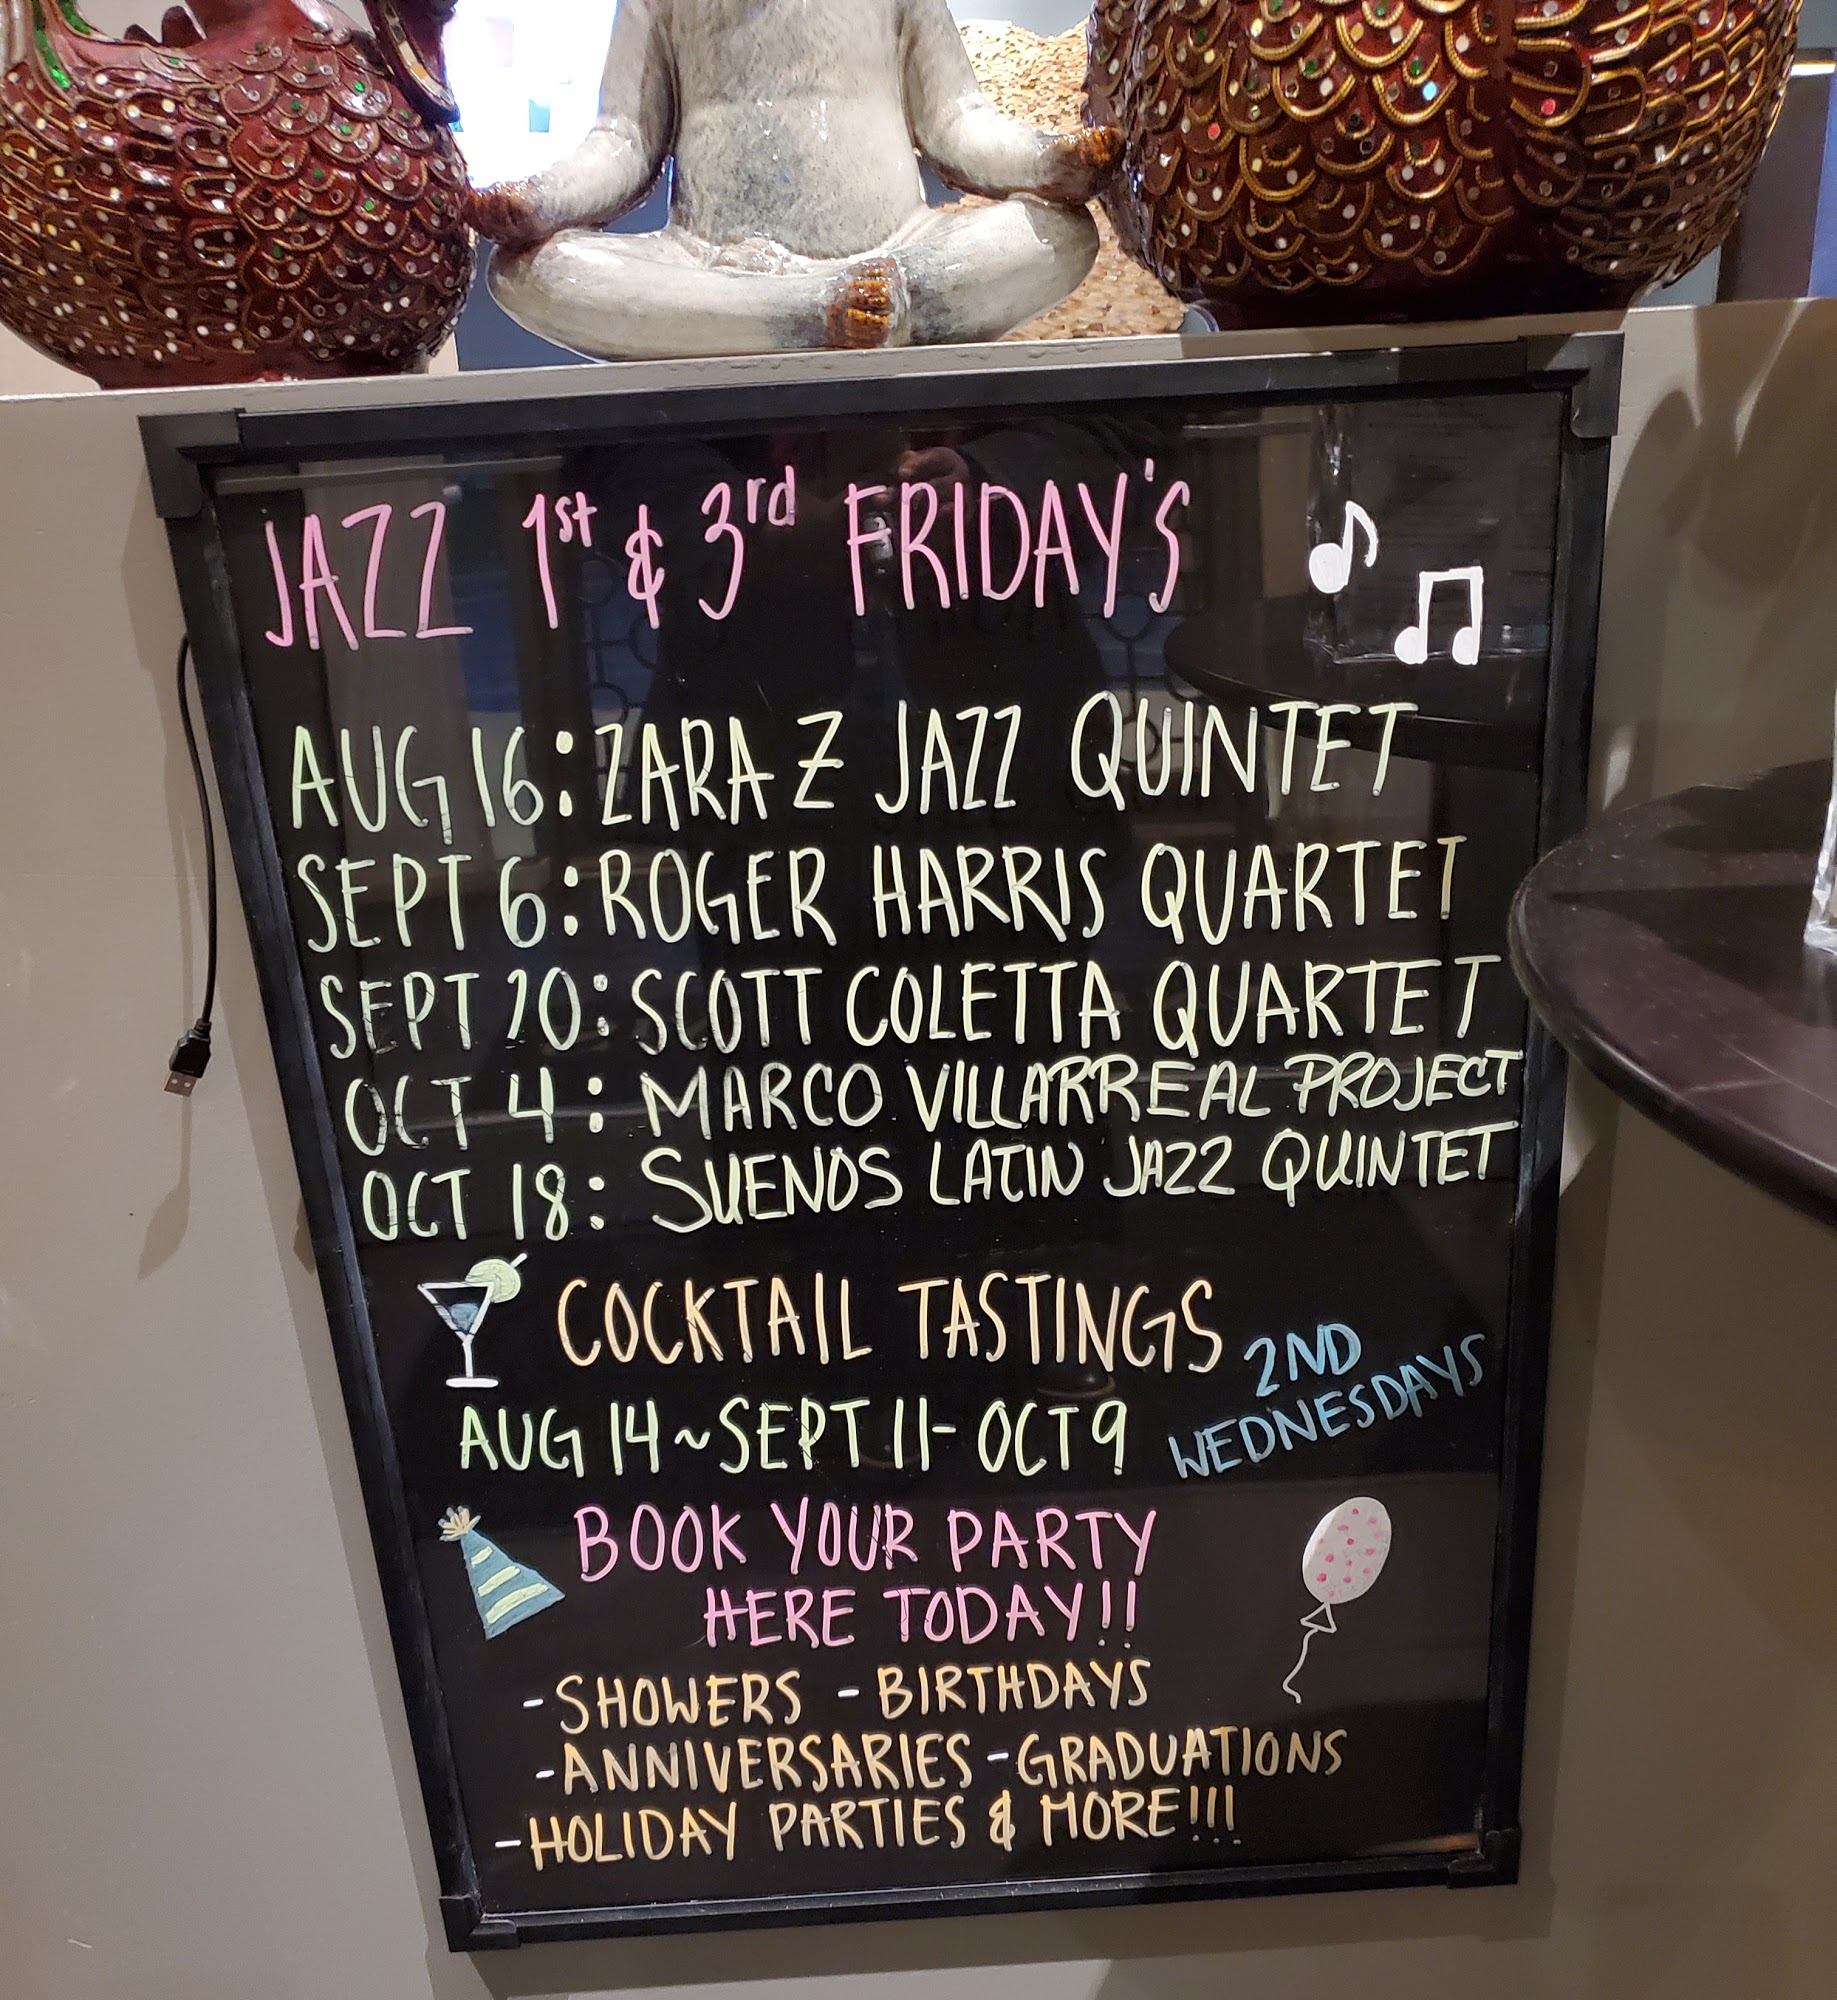 JAZZ 1st & 3rd FRIDAY'S
AUG 16: ZARA Z JAZZ QUINTET
SEPT 6: ROGER HARRIS QUARTET
SEPT 20: SCOTT COLETTA QUARTET
OCT 4: MARCO VILLARREAL PROJECT
OCT 18: SUENOS LATIN JAZZ QUINTET
COCKTAIL TASTINGS
2ND
WEDNESDAYS
AUG 14~SEPT 11-OCT 9
BOOK YOUR PARTY
HERE TODAY!!
-SHOWERS -BIRTHDAYS
-ANNIVERSARIES -GRADUATIONS
-HOLIDAY PARTIES & MORE!!!